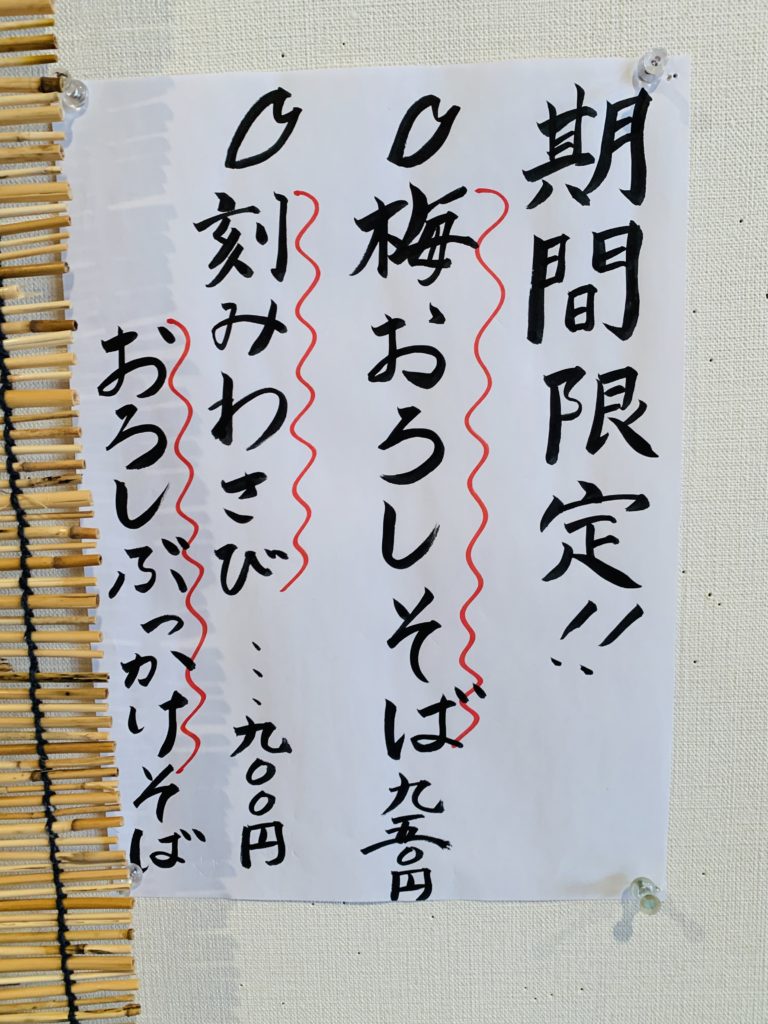 期間限定!!
梅おろしそば九五〇円
刻みわさび…九〇〇円
おろしぶっかけそば